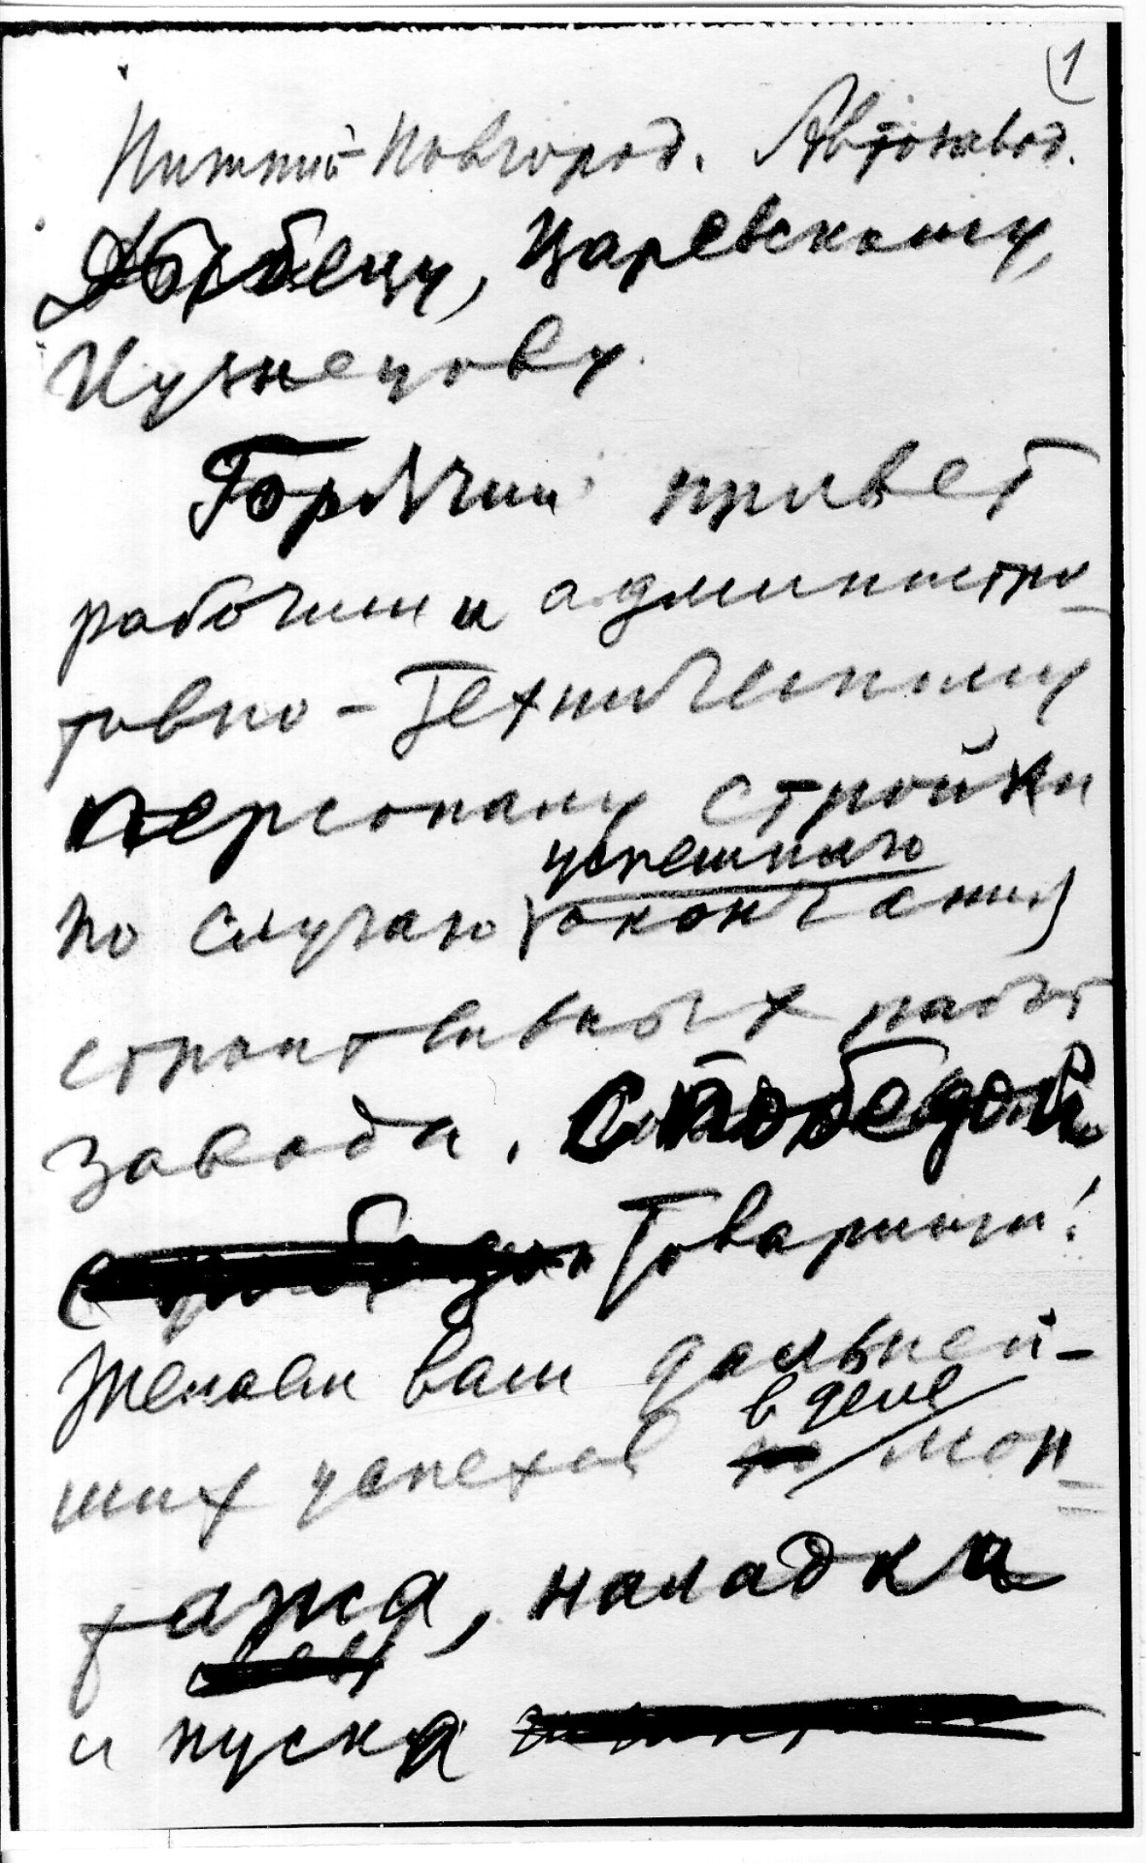 1
Нижний-Новгород. Автозавод.
Дыбецу, Царевскому,
Кузнецову.
Горячий привет
рабочим и администра-
тивно-техническому
персоналу стройки
успешного
по случаю окончания
строительных работ
завода. С победой
Товарищи!
Желаем вам дальней-
в деле
ших успехов по мон-
тажа, наладка
и пуска